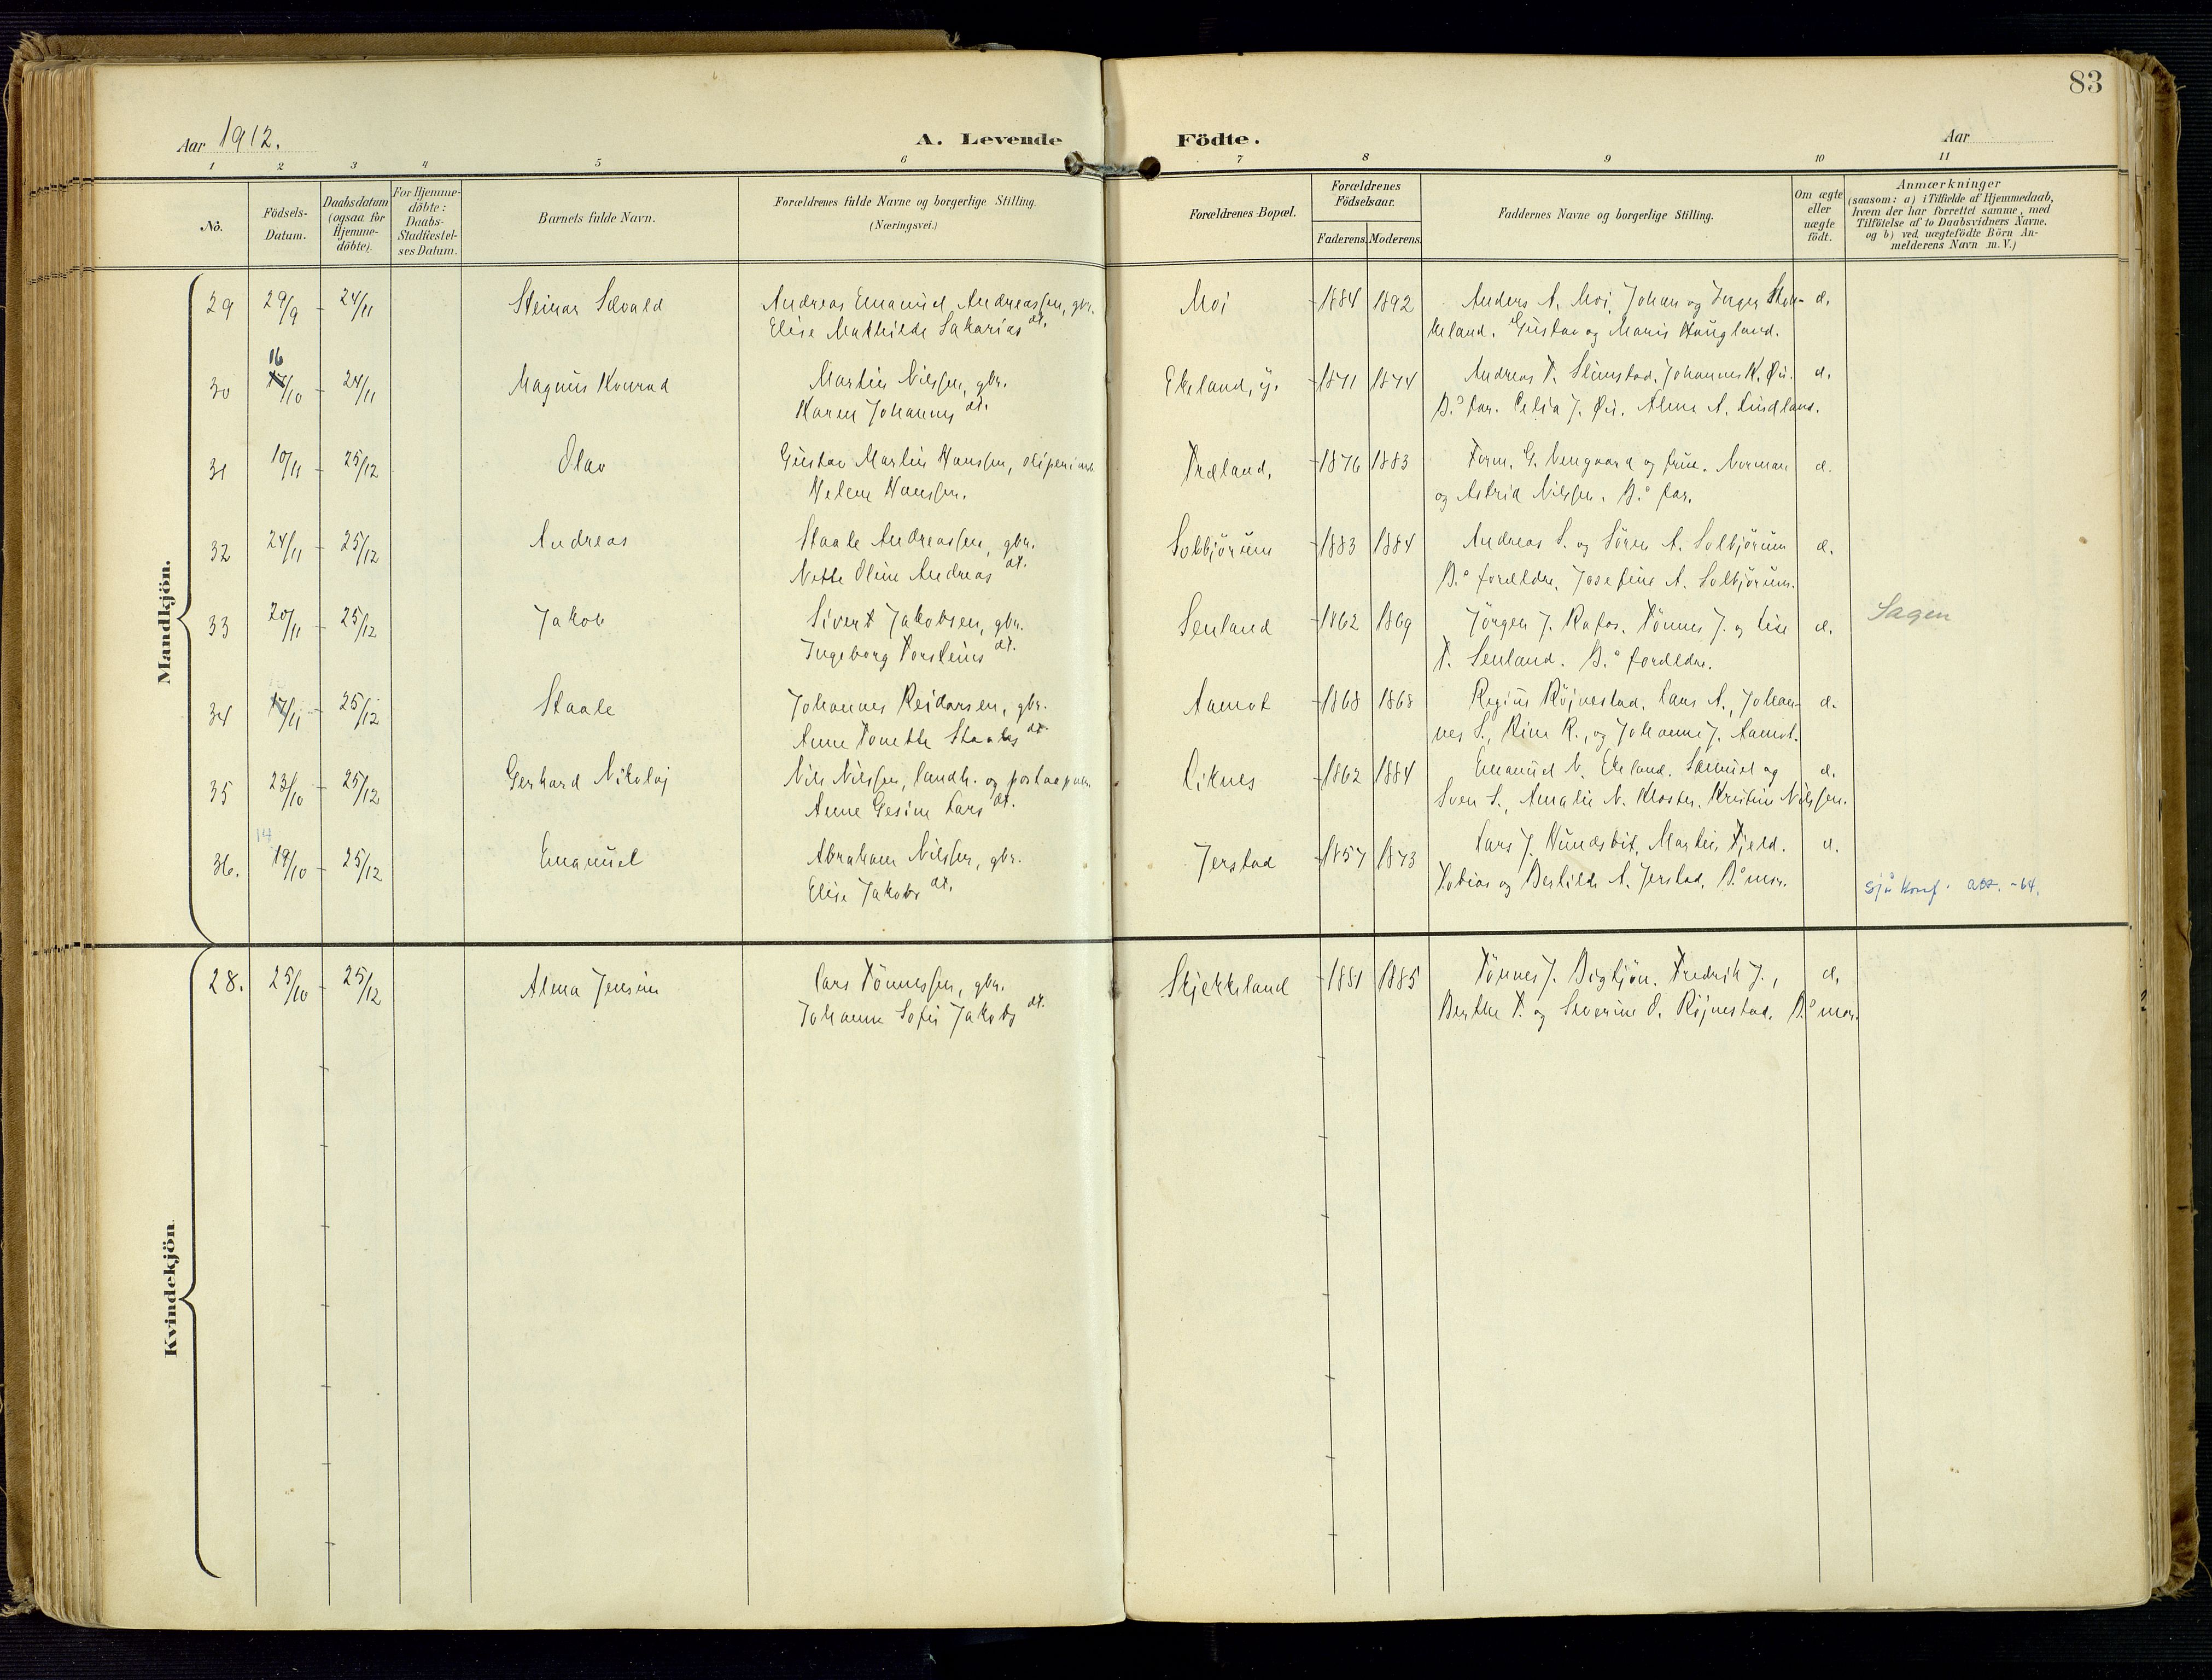 83
Aar 1912.
A. Levende Födte.
Aar
1 2 3 4 5 6 7 8 9 10 11
No.
Födsels-Datum.
Daabsdatum (ogsaa for Hjemme-döbte).
For Hjemme-döbte: Daabs-Stadfæstel-ses Datum.
Barnets fulde Navn.
Forældrenes fulde Navne og borgerlige Stilling. (Næringsvei.)
Forældrenes Bopæl.
Forældrenes Födselsaar.
Faderens. Moderens.
Faddernes Navne og borgerlige Stilling.
Om ægte eller uægte födt.
Anmærkninger (saasom: a) i Tilfælde af Hjemmedaab, hvem der har forrettet samme, med Tilföielse af to Daabsvidners Navne. og b) ved uægtefödte Börn Anmelderens Navn m.V.)
Mandkjön.
29 29/9 24/11 Steinar Sævald Andreas Emanuel Andreassen, gbr. Moi 1884 1892 Anders A. Moi, Johan og Inger Stok- æ.
Elise Mathilde Sakarias dt. keland. Gustav og Maris Haugland.
16
30 17/10 24/11 Magnus Konrad Martin Nilsen, gbr. Ekeland, y. 1871 1874 Andreas T. Slimstad, Johannes K. Øie. æ.
Karen Johannes dt. B.° far. Celia J. Øie. Alma A. Lindland.
31 10/11 25/12 Olav Gustav Martin Hanssen, Træland, 1876 1883 Form. G. Vengaard og frue. Norman æ.
Helene Hanssen. og Astrid Nilsen. B.° far.
32 24/11 25/12 Andreas Staale Andreassen, gbr. Solbjörum 1883 1884 Andreas S. og Sören A. Solbjörum æ.
Nette Oline Andreas dt. B.° forældre, Josefine A. Solbjörum.
33 20/11 25/12 Jakob Sivert Jakobsen, gbr. Senland 1862 1869 Jörgen J. Rafos. Tönnes J. og Lise æ. Sagen
Ingeborg Torsteins dt. T. Senland. B.° forældre.
34 17/11 25/12 Staale Johannes Reidarsen, gbr. Aamot 1868 1868 Regine Röjnestad, Lars A., Johan- æ.
Anne Tonette Staales dt. nes S., Rine R., og Johanne J. Aamot.
35 23/10 25/12 Gerhard Nikolaj Nils Nilsen, landh. og Liknes 1862 1884 Emanuel N. Ekeland. Samuel og æ.
Anne Gesine Lars dt. Sven S., Amalie N. Kloster, Kristine Nilsen.
14
36. 19/10 25/12 Emanuel Abraham Nilsen, gbr. Jerstad 1857 1873 Lars J. Hundsbit, Martin Fjeld. æ.
Elise Jakobs dt. Tobias og Bertilde A. Jerstad, B.° mor. sjå konf. att. -64.
Kvindekjön.
28. 25/10 25/12 Alma Jensine Lars Tönnessen, gbr. Skjekkeland 1881 1885 Tönnes J. Bigtjön. Fredrik J., æ.
Johanne Sofie Jakobs dt. Berthe T. og Severine O. Röjnestad. B.° mor.